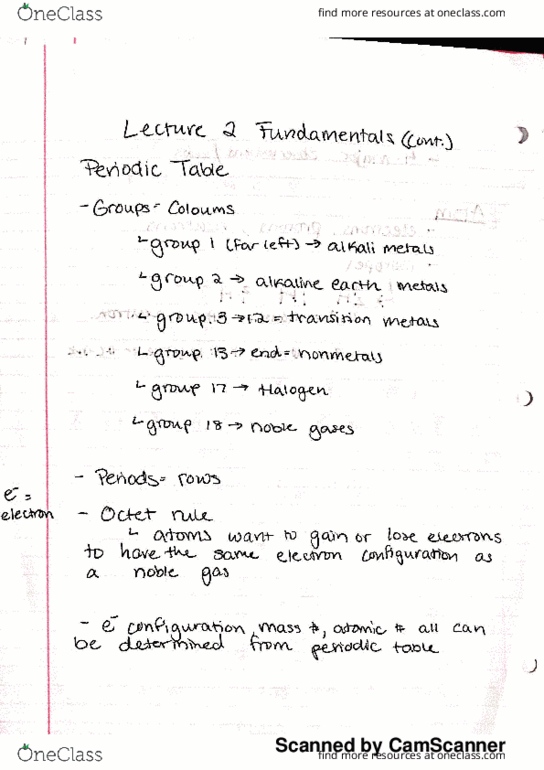 OneClass
find more resources at oneclass.com
Lecture 2 Fundamentals (Cont.)
Periodic Table
- Groups = Coloums
↳ group 1 (far left) → alkali metals
↳ group 2 → alkaline earth metals
↳ group 3 → 12 = transition metals
↳ group 13 → end = nonmetals
↳ group 17 → Halogen
↳ group 18 → noble gases
- Periods = rows
e⁻ =
electron
- Octet rule
↳ atoms want to gain or lose electrons
to have the same electron configuration as
a noble gas
- e⁻ configuration, mass #, atomic # all can
be determined from periodic table
Scanned by CamScanner
OneClass
find more resources at oneclass.com